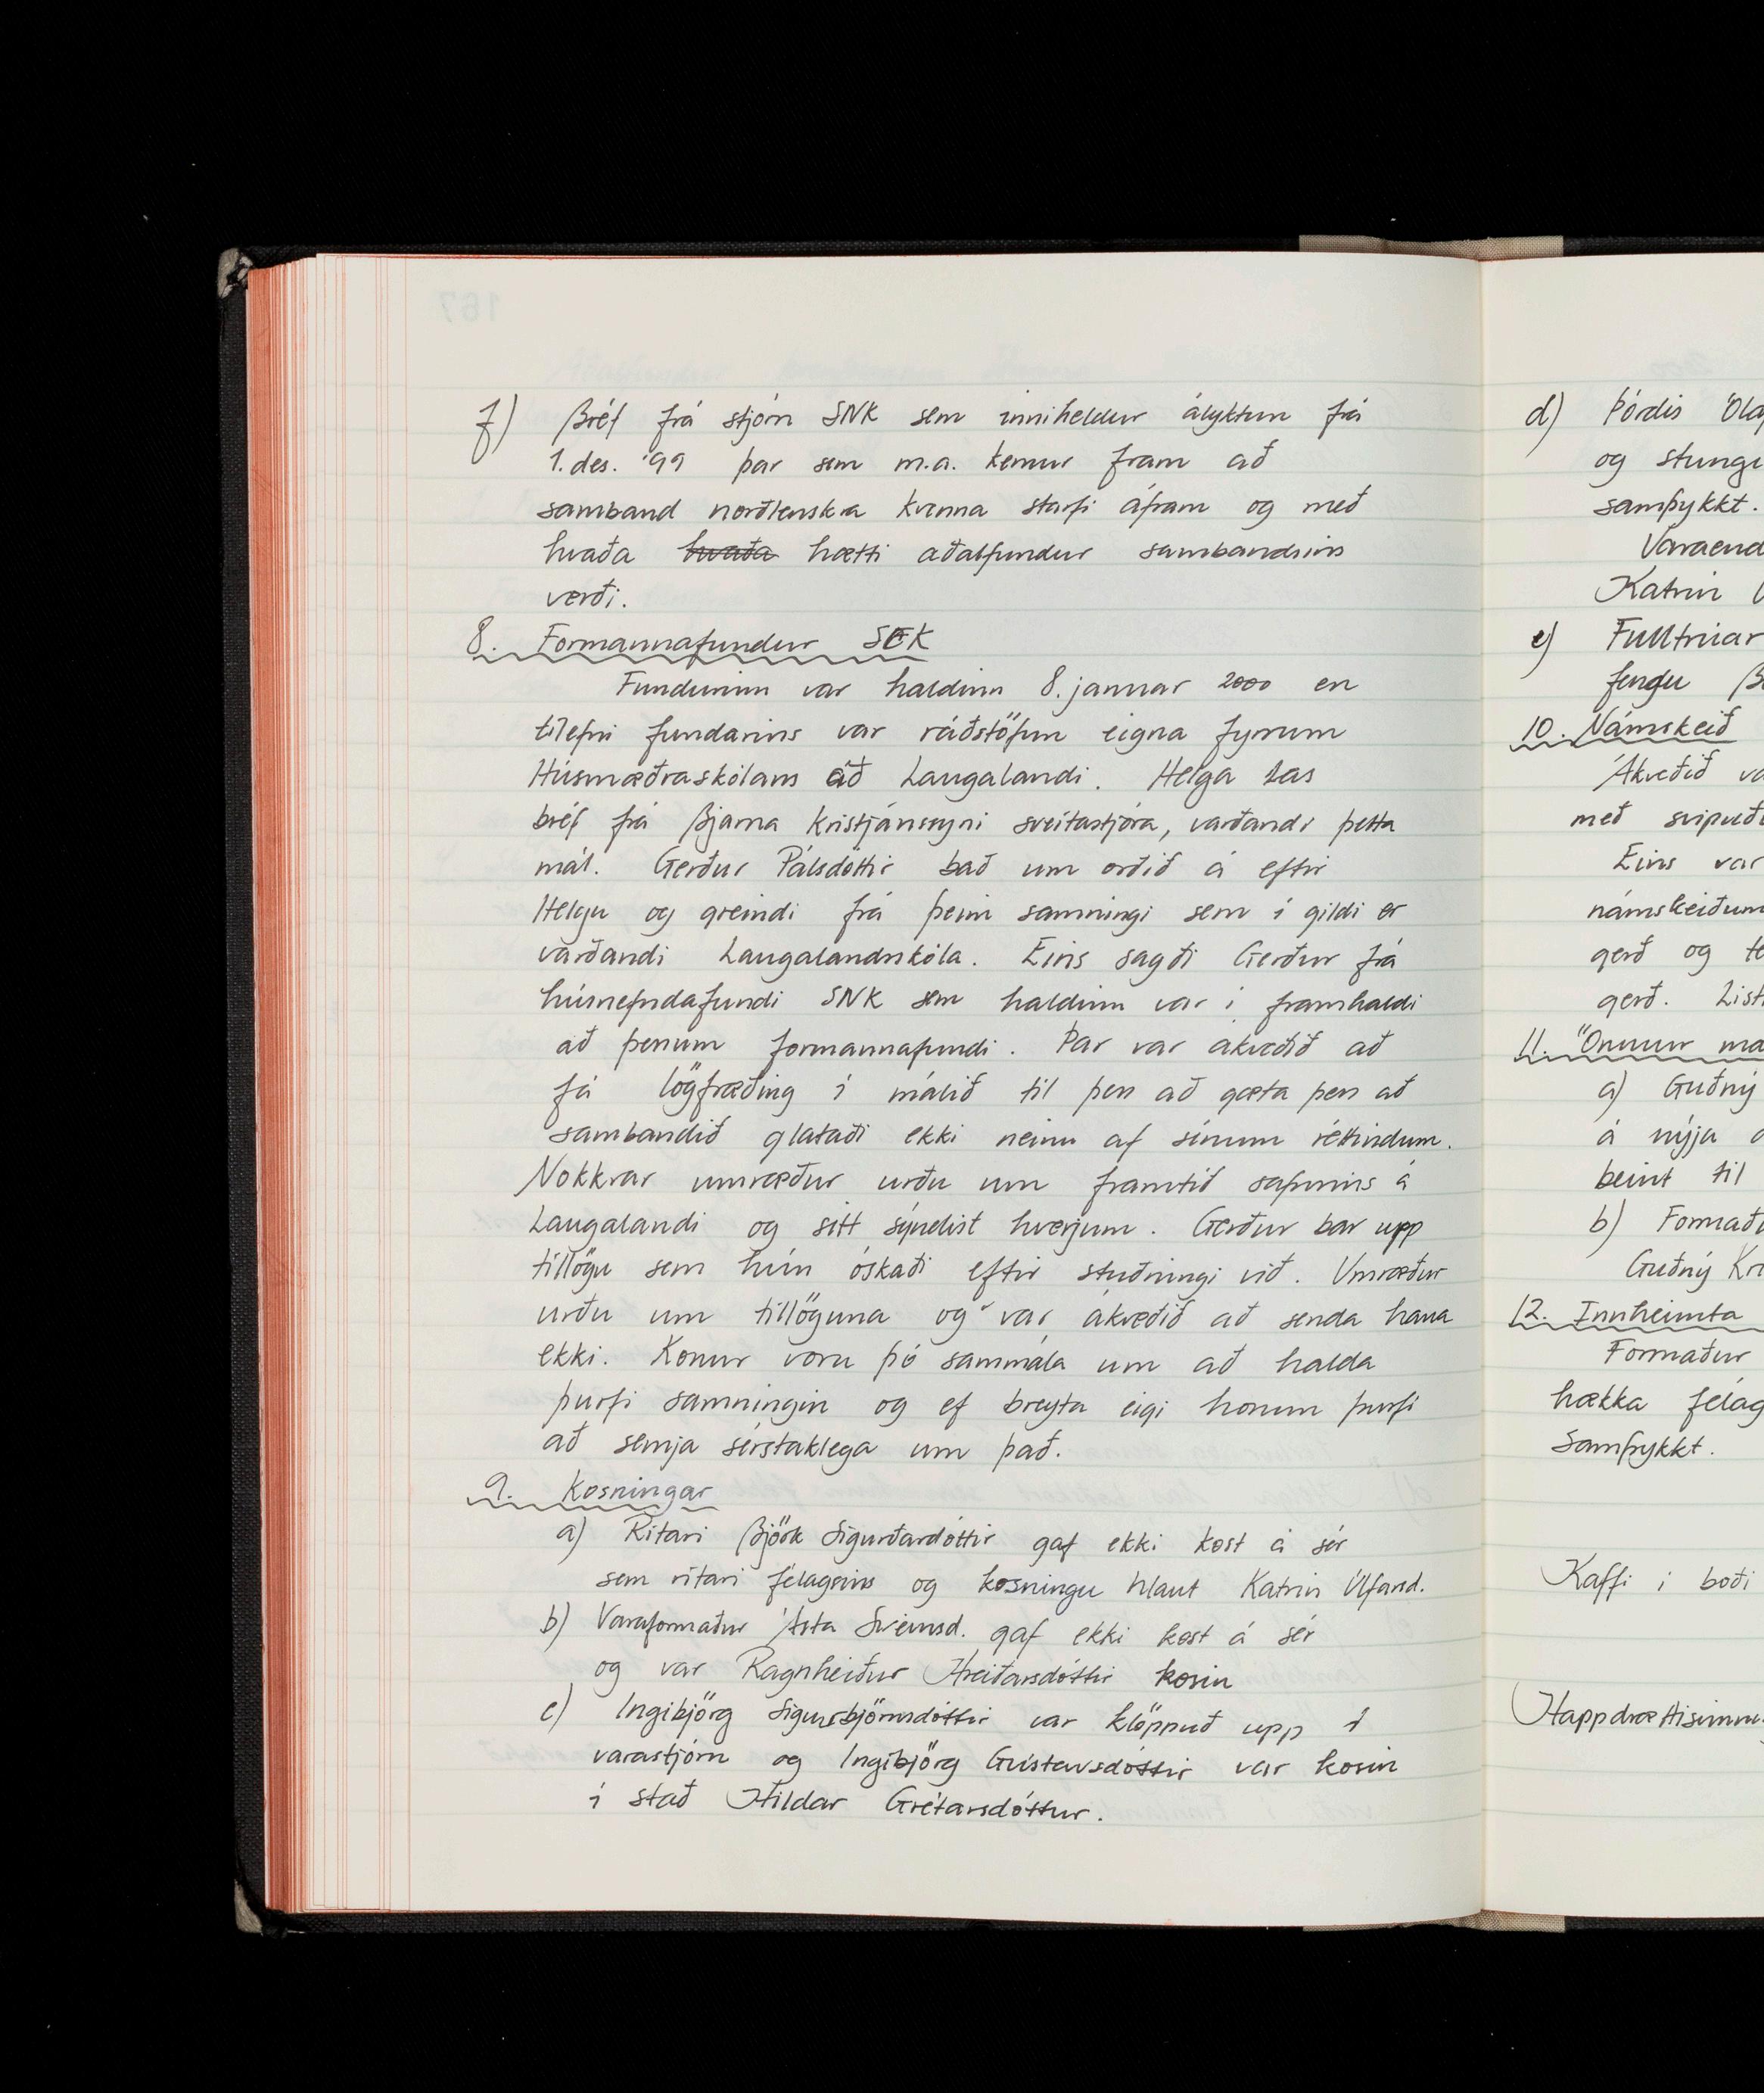 f) Bréf frá stjórn SNK sem inniheldur ályktun frá
1. des. '99 þar sem m.a. kemur fram að
samband norðlenskra kvenna starfi áfram og með
hvaða hvaða hætti aðalfundur sambandsins
verði.
8. Formannafundur SEK
Fundurinn var haldinn 8. januar 2000 en
tilefni fundarins var ráðstöfun eigna fyrrum
Húsmæðraskólans að Laugalandi. Helga las
bréf frá Bjarna Kristjánssyni sveitastjóra, varðandi þetta
mál. Gerður Pálsdóttir bað um orðið á eftir
Helgu og greindi frá þeim samningi sem í gildi er
varðandi Laugalandsskóla. Eins sagði Gerður frá
húsnefndafundi SNK sem haldinn var í framhaldi
að þessum formannafundi. Þar var ákveðið að
fá lögfræðing í málið til þess að gæta þess að
sambandið glataði ekki neinu af sínum réttindum.
Nokkrar umræður urðu um framtíð safnsins á
Laugalandi og sitt sýndist hverjum. Gerður bar upp
tillögu sem hún óskaði eftir stuðningi við. Umræður
urðu um tillöguna og var ákveðið að senda hana
ekki. Konur voru þó sammála um að halda
þurfi samningin og ef breyta eigi honum þurfi
að semja sérstaklega um það.
9. Kosningar
a) Ritari Björk Sigurðardóttir gaf ekki kost á sér
sem ritari félagsins og kosningu hlaut Katrín Úlfarsd.
b) Varaformaður Ásta Sveinsd. gaf ekki kost á sér
og var Ragnheiður Hreiðarsdóttir kosin
c) Ingibjörg Sigursbjörnsdóttir var klöppuð upp í
varastjórn og Ingibjörg Gústavsdóttir var kosin
í stað Hildar Grétarsdóttur.
d) Þórdís Óla
og stungi
samþykkt.
Varaend
Katrín
e) Fulltrúar
fengu
10. Námskeið
Ákveðið va
með svipuð
Eins var
námskeiðum
gerð og te
gerð. List
11. Önnur ma
a) Guðný
á nýja
beint til
b) Formað
Guðný Kri
12. Innheimta
Formaður
hækka félag
Samþykkt.
Kaffi í boði
Happdrættisvinn